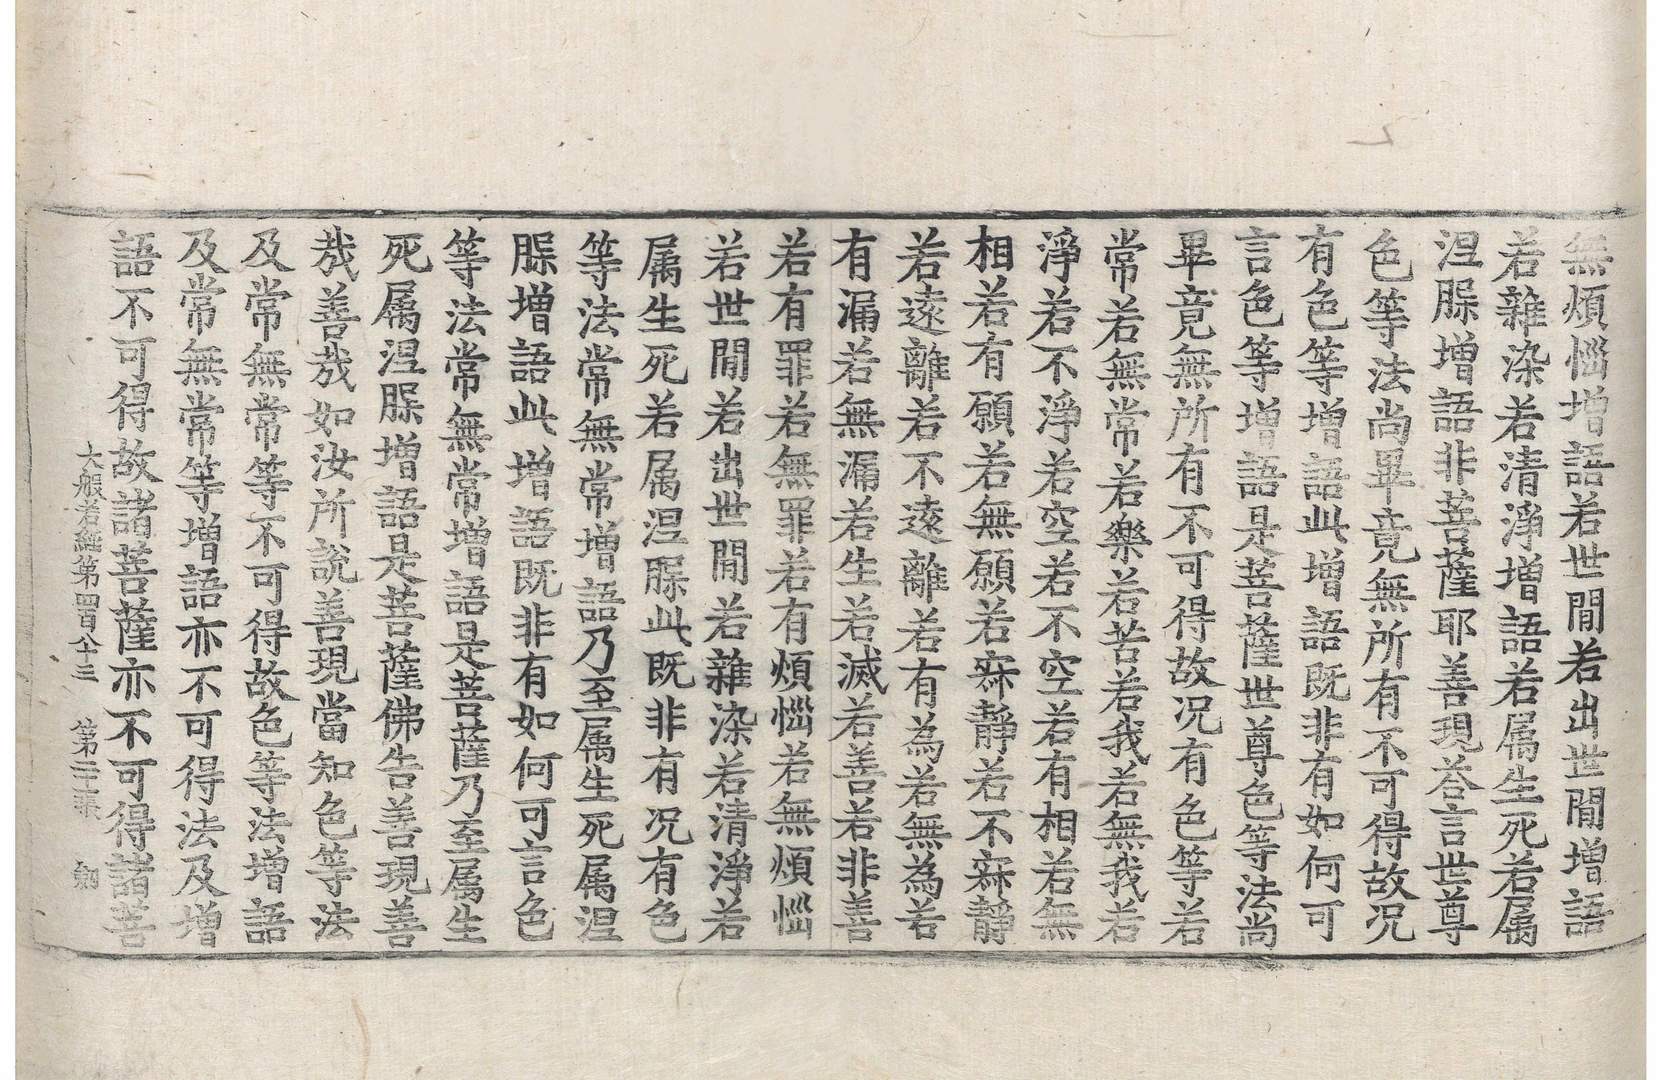 無煩惱增語若世閒若出世閒增語
若雜染若清淨增語若属生死若属
涅槃增語非菩薩耶善現荅言世尊
色等法尚畢竟無所有不可得故况
有色等增語此增語既非有如何可
言色等增語是菩薩世尊色等法尚
畢竟無所有不可得故况有色等若
常若無常若樂若苦若我若無我若
淨若不淨若空若不空若有相若無
相若有願若無願若寂靜若不寂靜
若遠離若不遠離若有為若無為若
有漏若無漏若生若滅若善若非善
若有罪若無罪若有煩惱若無煩惱
若世閒若出世閒若雜染若清淨若
属生死若属涅槃此既非有况有色
等法常無常增語乃至属生死属涅
槃增語此增語既非有如何可言色
等法常無常增語是菩薩乃至属生
死属涅槃增語是菩薩佛告善現善
哉善哉如汝所說善現當知色等法
及常無常等不可得故色等法增語
及常無常等增語亦不可得法及增
語不可得故諸菩薩亦不可得諸菩
大般若經第四百八十三